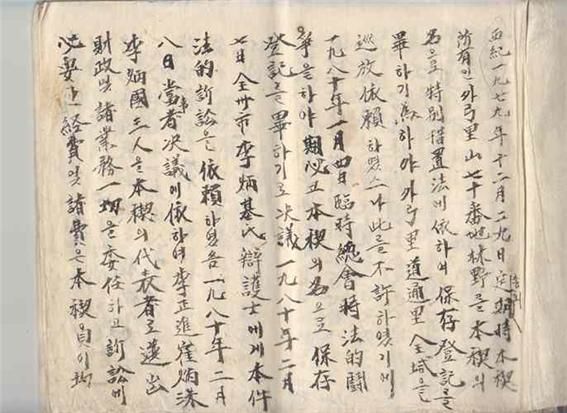 西紀一九七九年十二月二九日定期總會時本楔
所有인外弓里山七十番地林野를本楔의
名으로特別措置法에依하여保存登記를
畢하기爲하야外弓里道通里全域을
巡放依賴하였으나此를不許하였기에
一九八十年一月四日臨時總會時法的鬪
爭을하야期必코本楔의名으로保存
登記를畢하기로決議一九八十年二月
七日全州市李炳基氏辯護士에게本件
法的訴訟을依賴하였음一九八十年二月
八日當事者決議에依하여李正進崔炳洙
李炳國三人을本楔의代表者로選出
財政및諸業務一切을委任하고訴訟에
必要한經費및諸費은本楔員이均